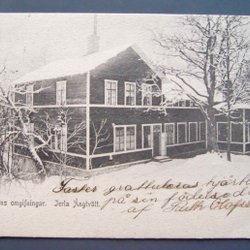 ns omgifningar. Jerla Ångtvätt.
Faster gratuleras hjärtl
på sin födelsed
af Ruth Olofss